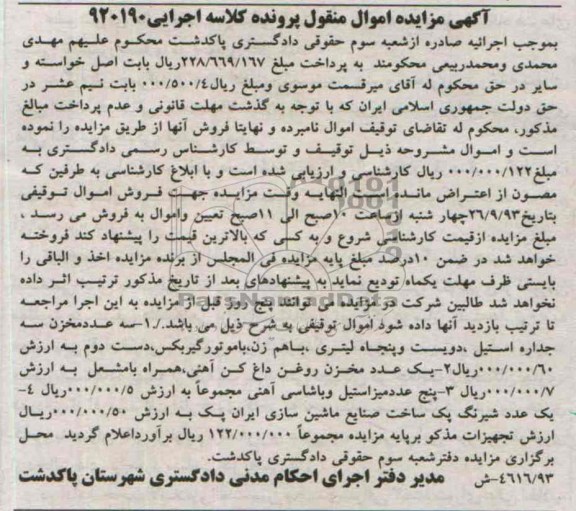 آگهی مزایده اموال منقول پرونده کلاسه اجرایی۹۲۰۱۹۰
بموجب اجرائیه صادره ازشعبه سوم حقوقی دادگستری پاکدشت محکوم علیهم مهدی
محمدی ومحمدربیعی محکومند به پرداخت مبلغ ۲۲۸/۶۶۹/۱۶۷ریال بابت اصل خواسته و
سایر در حق محکوم له آقای میرقسمت موسوی ومبلغ ریال۰۰۰/۵۰۰/۴ بابت نیم عشر در
حق دولت جمهوری اسلامی ایران که با توجه به گذشت مهلت قانونی و عدم پرداخت مبالغ
مذکور، محکوم له تقاضای توقیف اموال نامبرده و نهایتا فروش آنها از طریق مزایده را نموده
است و اموال مشروحه ذیل توقیف و توسط کارشناس رسمی دادگستری به
مبلغ۰۰۰/۰۰۰/۱۲۲ ریال کارشناسی و ارزیابی شده است و با ابلاغ کارشناسی به طرفین که
مصون از اعتراض مانده النهایه وقت مزایده جهت فروش اموال توقیفی
بتاریخ۲۶/۹/۹۳چهار شنبه ازساعت ۱۰صبح الی ۱۱صبح تعیین واموال به فروش می رسد ،
مبلغ مزایده ازقیمت کارشناسی شروع و به کسی که بالاترین قیمت را پیشنهاد کند فروخته
خواهد شد در ضمن ۱۰درصد مبلغ پایه مزایده فی المجلس از برنده مزایده اخذ و الباقی را
بایستی ظرف مهلت یکماه تودیع نماید به پیشنهادهای بعد از تاریخ مذکور ترتیب اثر داده
نخواهد شد طالبین شرکت در مزایده می توانند پنج روز قبل از مزایده به این اجرا مراجعه
تا ترتیب بازدید آنها داده شود اموال توقیفی به شرح ذیل می باشد./۱-سه عددمخزن سه
جداره استیل ،دویست وپنجاه لیتری ،باهم زن،باموتورگیربکس،دست دوم به ارزش
۰۰۰/۰۰۰/۶۰ریال۲-یک عدد مخزن روغن داغ کن آهنی،همراه بامشعل به ارزش
۰۰۰/۰۰۰/۷ریال ۳-پنج عددمیزاستیل وباشاسی آهنی مجموعاً به ارزش ۰۰۰/۰۰۰/۵ریال ۴-
یک عدد شیرنگ پک ساخت صنایع ماشین سازی ایران پک به ارزش ۰۰۰/۰۰۰/۵۰ریال
ارزش تجهیزات مذکو برپایه مزایده مجموعاً ۱۲۲/۰۰۰/۰۰۰ ریال برآورداعلام گردید محل
برگزاری مزایده دفترشعبه سوم حقوقی دادگستری پاکدشت.
۴۶۱۶/۹۳-ش مدیر دفتر اجرای احکام مدنی دادگستری شهرستان پاکدشت